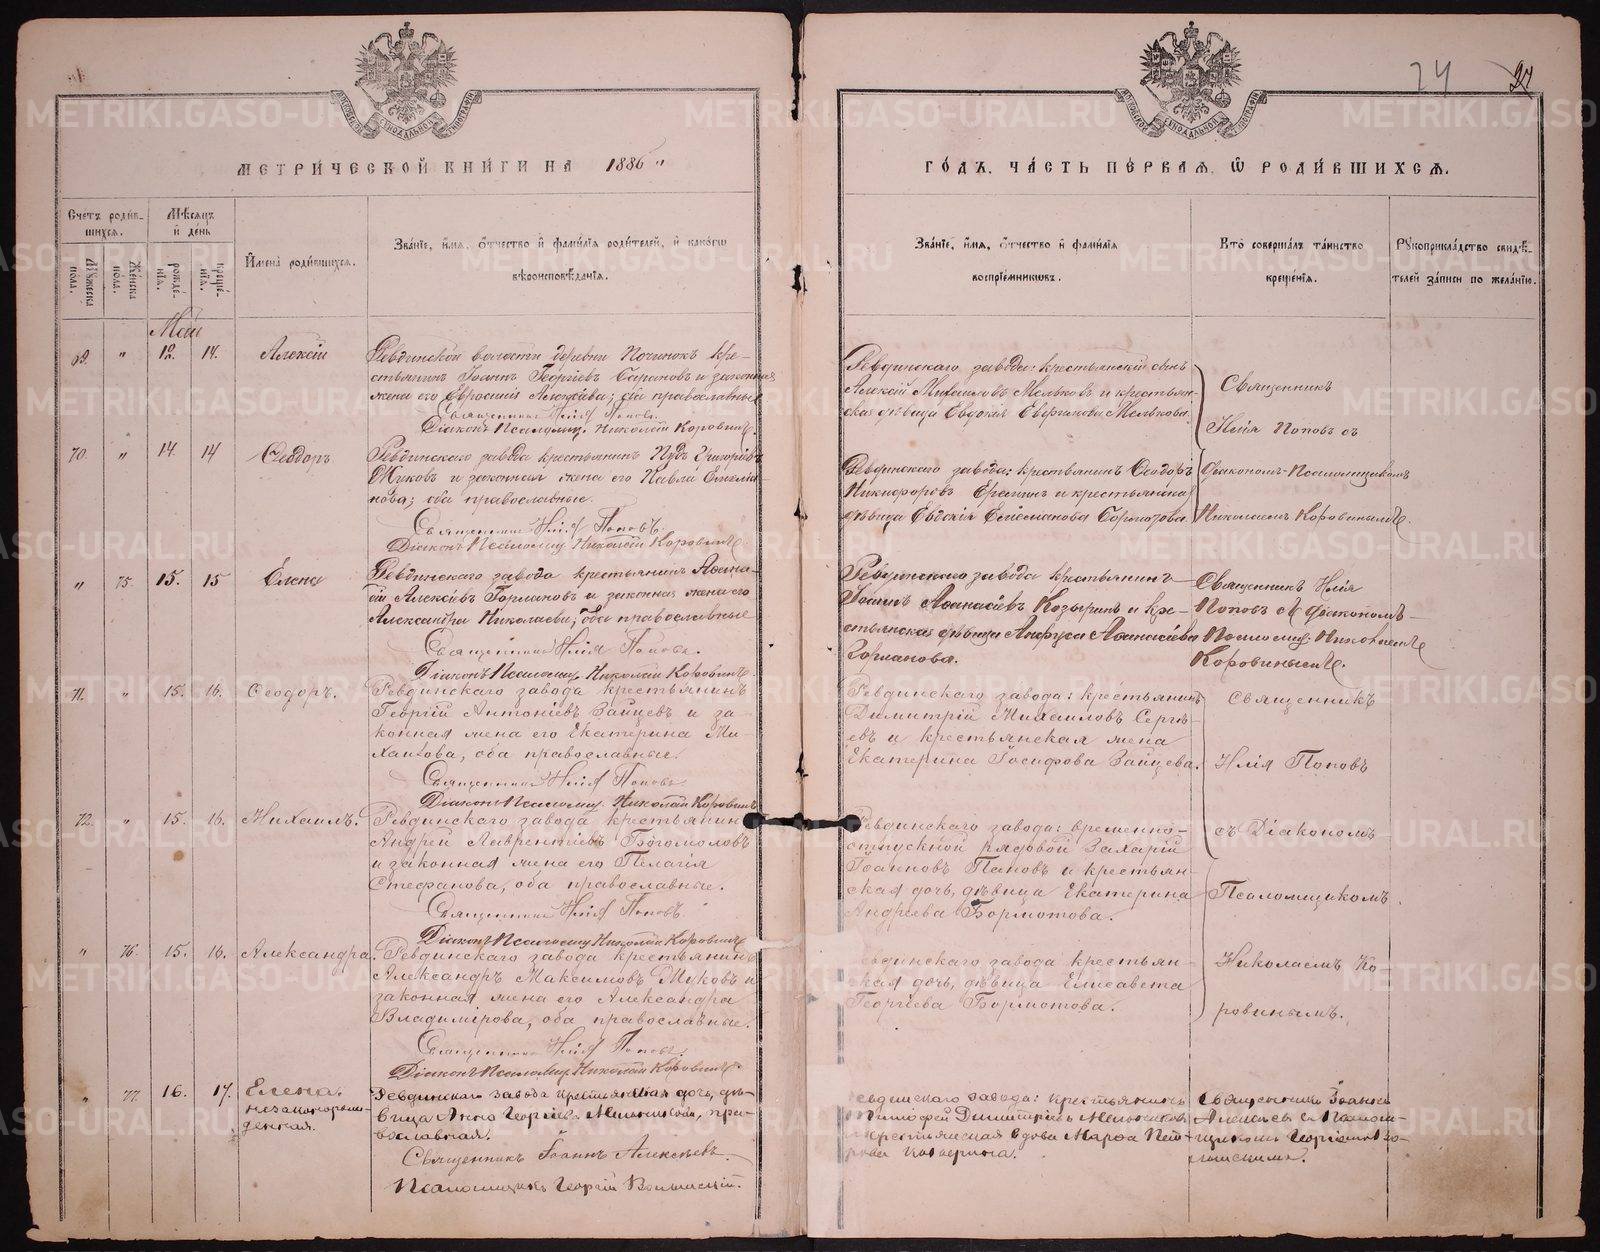 24 27
МЕТРИ́ЧЕСКОЙ КНИ́ГИ НА 1886 "
ГО́ДЪ. ЧА́СТЬ ПЕ́РВАЯ, Ѡ РОДИ́ВШИХСЯ.
Счетъ роди́в-
шихся.
Мѣ́сяцъ
и҆ де́нь
Мꙋ́жеска
по́ла.
Же́нска
по́ла.
рожде́-
нїѧ.
креще́-
нїѧ.
И҆мена̀ роди́вшихся.
Зва́нїе, и҆́мѧ, ѻ҆́тчество и҆ фами́лїѧ роди́телей, и҆ како́гѡ
вѣроисповѣ́данїѧ.
Зва́нїе, и҆́мѧ, ѻ҆́тчество и҆ фами́лїѧ
воспрїе́мникѡвъ.
Кто̀ соверша́лъ та́инство
креще́нїѧ.
Рꙋкоприкла́дство свидѣ́-
телей за́писи по жела́нїю.
Май
69. " 12. 14. Алексій
Ревдинской волости деревни Починокъ кре-
стьянинъ Іоаннъ Георгіевъ и законная
жена его Евросинія оба православные
Священникъ Илія Поповъ.
Діаконъ Псаломщ. Николай Коровинъ.
Ревдинскаго завода: крестьянскій сынъ
Алексій Михаиловъ Мельковъ и крестьян-
ская дѣвица Евдокія Мелькова.
Священникъ
Илія Поповъ съ
70. " 14. 14 Ѳеодоръ
Ревдинскаго завода крестьянинъ Григорьевъ
и законная жена его Павла
оба православные.
Священникъ Илія Поповъ.
Діаконъ Псаломщ. Николай Коровинъ.
Ревдинскаго завода: крестьянинъ Ѳеодоръ
Никифоровъ и крестьянская
дѣвица Евдокія
Діакономъ-Псаломщикомъ
Николаемъ Коровинымъ.
" 75. 15. 15 Елена
Ревдинскаго завода крестьянинъ Аѳана-
сій Алексѣевъ Горлановъ и законная жена его
Александра Николаева; оба православные
Священникъ Илія Поповъ.
Діаконъ Псаломщ. Николай Коровинъ.
Ревдинскаго завода крестьянинъ
Іоаннъ Аѳанасіевъ Козыринъ и кре-
стьянская дѣвица Анфуса Аѳанасіева
Горланова.
Священникъ Илія
Поповъ съ Діакономъ-
Псаломщ. Николаемъ
Коровинымъ.
71. " 15. 16. Ѳеодоръ.
Ревдинскаго завода крестьянинъ
Георгій Антоніевъ Зайцевъ и за-
конная жена его Екатерина Ми-
хаилова, оба православные.
Священникъ Илія Поповъ
Діаконъ Псаломщ. Николай Коровинъ
Ревдинскаго завода: крестьянинъ
Димитрій Михаиловъ Сергѣ-
евъ и крестьянская жена
Екатерина Іосифова Зайцева.
Священникъ
Илія Поповъ
72. " 15. 16. Михаилъ.
Ревдинскаго завода крестьянинъ
Андрей Лаврентіевъ Богомоловъ
и законная жена его Пелагія
Стефанова, оба православные.
Священникъ Илія Поповъ.
Діаконъ Псаломщ. Николай Коровинъ
Ревдинскаго завода: временно-
отпускной рядовой Захарій
Іоанновъ Пановъ и крестьян-
ская дочь, дѣвица Екатерина
Андреева Бормотова.
съ Діакономъ-
Псаломщикомъ
" 76. 15. 16. Александра.
Ревдинскаго завода крестьянинъ
Александръ Максимовъ Шуковъ и
законная жена его Александра
Владимірова, оба православные.
Священникъ Илія Поповъ.
Діаконъ Псаломщ. Николай Коровинъ.
Ревдинскаго завода крестьян-
ская дочь, дѣвица Елисавета
Георгіева Бормотова.
Николаемъ Ко-
ровинымъ.
" 77. 16. 17. Елена.
незаконорож-
денная.
Ревдинскаго завода крестьянская дочь, дѣ-
вица Анна Георгіева пра-
вославная.
Священникъ Іоаннъ Алексѣевъ.
Псаломщикъ Георгій
Ревдинскаго завода: крестьянинъ
Тимофей Димитріевъ
и крестьянская вдова Марѳа
Священникъ Іоаннъ
Алексѣевъ съ Псалом-
щикомъ Георгіемъ
METRIKI.GASO-URAL.RU